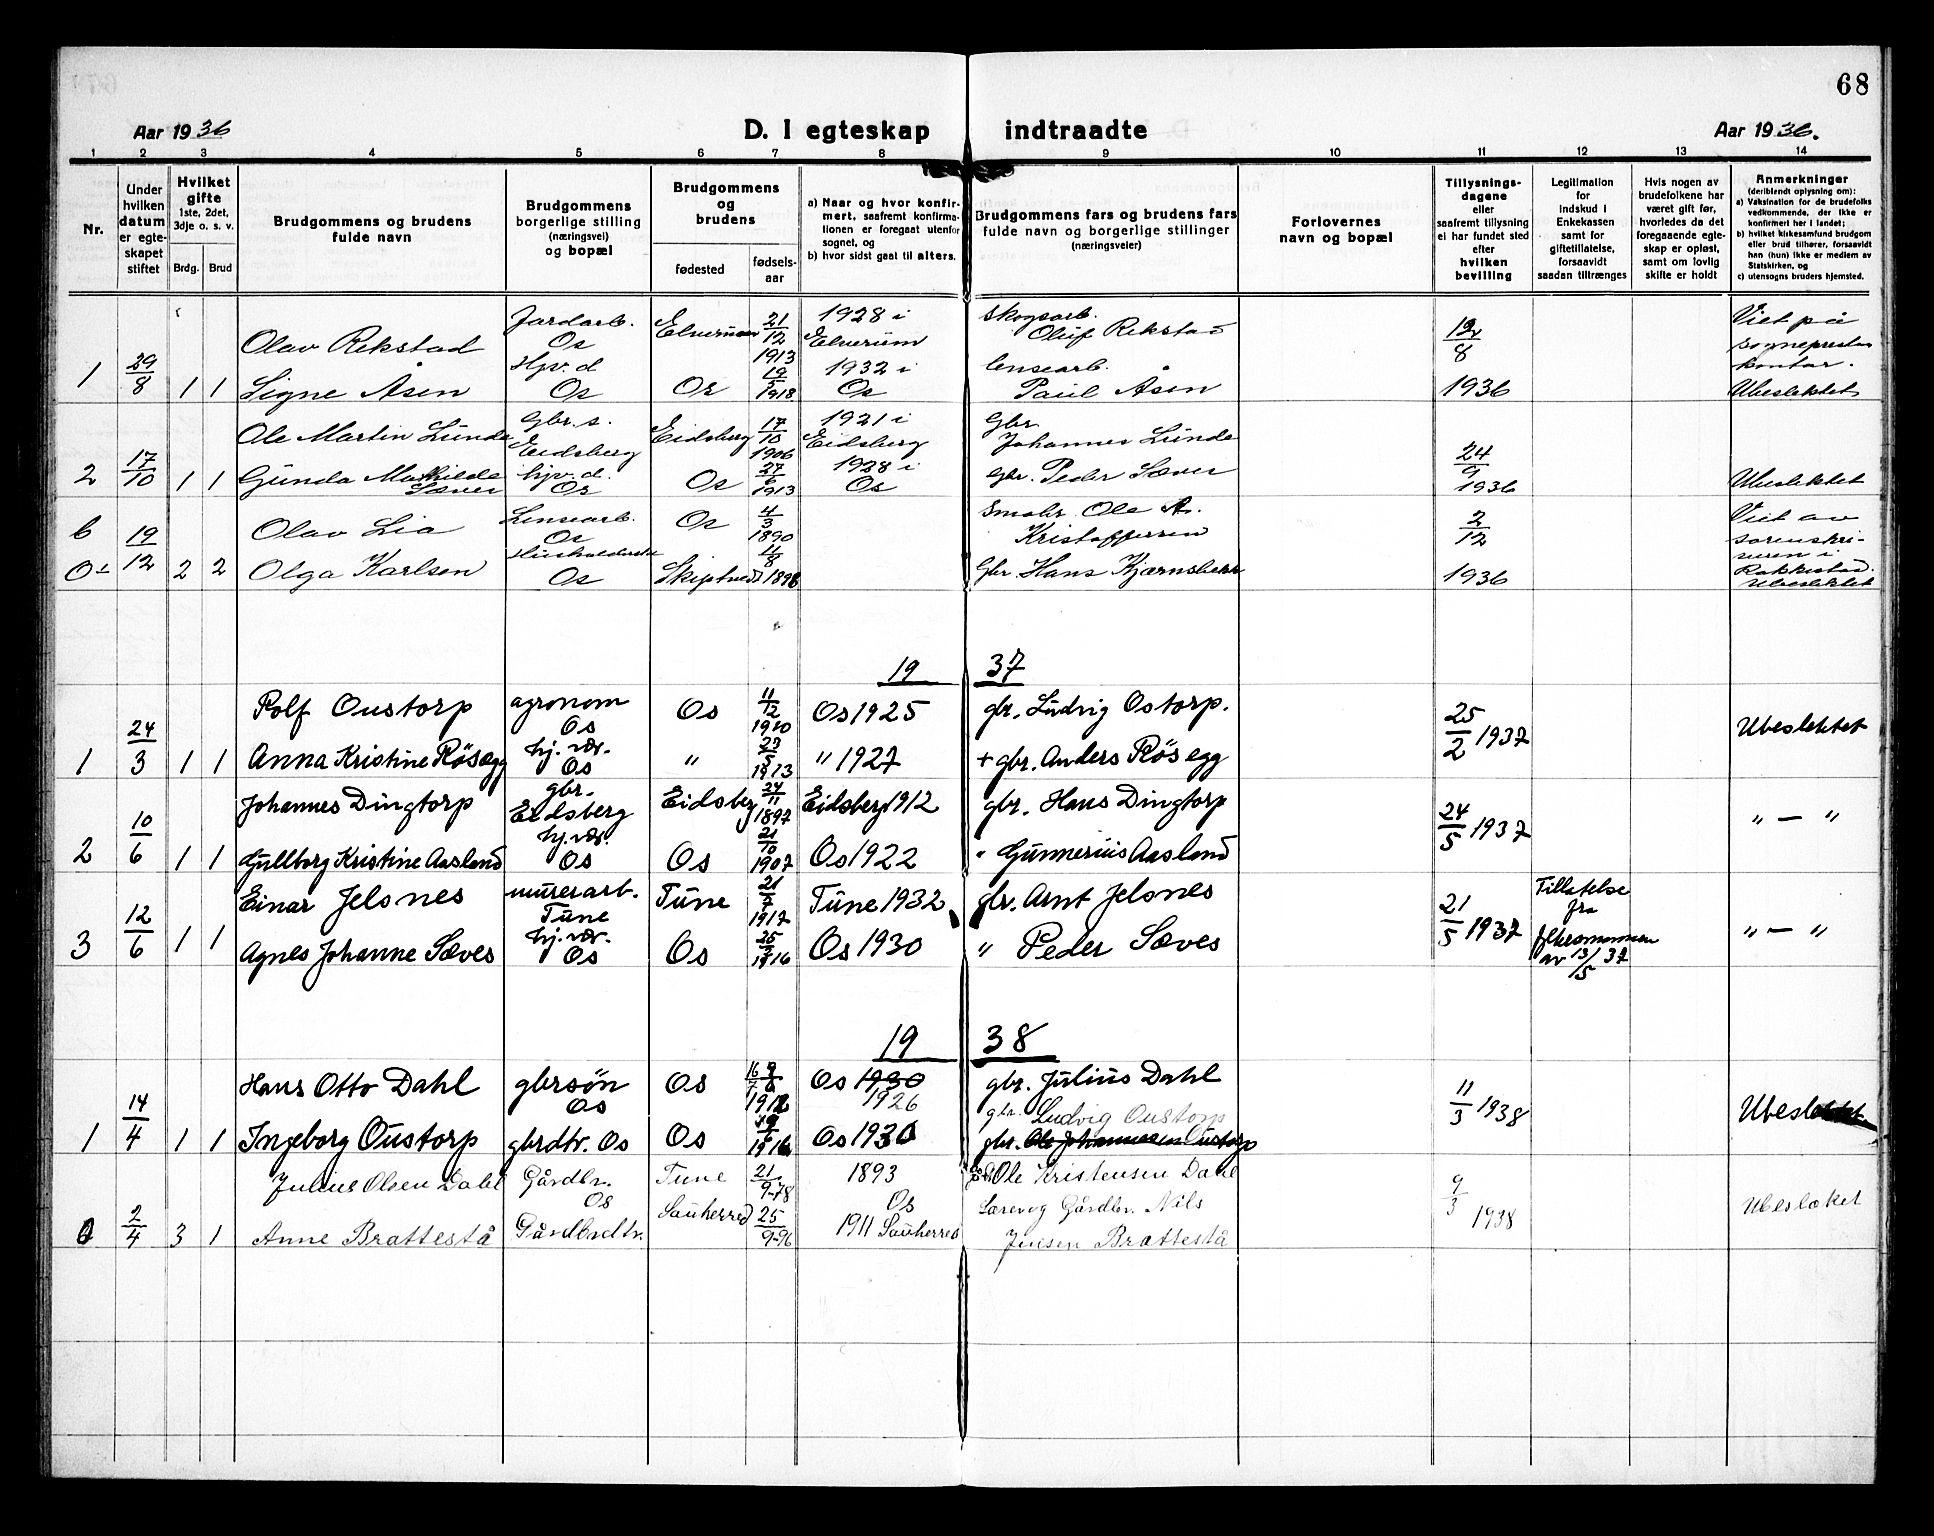 68
Aar 1936
D. I egteskap indtraadte
Aar 1936.
1 2 3 4 5 6 7 8 9 10 11 12 13 14
Nr.
Under hvilken datum er egteskapet stiftet
Hvilket gifte
1ste, 2det, 3dje o. s. v.
Brdg. Brud
Brudgommens og brudens fulde navn
Brudgommens borgerlige stilling (næringsvei) og bopæl
Brudgommens og brudens
fødested
fødselsaar
a) Naar og hvor konfirmert, saafremt konfirmationen er foregaat utenfor sognet, og
b) hvor sidst gaat til alters.
Brudgommens fars og brudens fars fulde navn og borgerlige stillinger (næringsveier)
Forlovernes navn og bopæl
Tillysningsdagene eller saafremt tillysning ei har fundet sted efter hvilken bevilling
Legitimation for Indskud i Enkekassen samt for giftetillatelse, forsaavidt saadan tiltrænges
Hvis nogen av brudefolkene har været gift før, hvorledes da det foregaaende egteskap er opløst, samt om lovlig skifte er holdt
Anmerkninger
(deriblendt oplysning om):
a) Vaksination for de brudefolks vedkommende, der ikke er konfirmert her i landet;
b) hvilket kirkesamfund brudgom eller brud tilhører, forsaavidt han (hun) ikke er medlem av Statskirken, og
c) utensogns bruders hjemsted.
1 29/8 1 1
Olav Rekstad Jordarb. Os Elverum 21/12 1913 1928 i Elverum Skogsarb. Oluf Rekstad 12/8 1936 Viet på sogneprestens kontor.
Signe Åsen Hjv. d Os Os 19/5 1918 1932 i Os lensearb. Paul Åsen Ubeslektet
2 17/10 1 1
Ole Martin Lunde Gbr. s. Eidsberg Eidsberg 17/10 1906 1921 i Eidsberg Gbr Johannes Lunde 24/9 1936
Gunda Mathilde Sæves hjv. d. Os Os 27/6 1913 1928 i Os Gbr. Peder Sæves Ubeslektet
b 0 19/12 2 2
Olav Lia Lensearb. Os Os 4/3 1890 Smabr. Ole A. Kristoffersen 2/12 1936 Viet av sorenskriveren i Rakkestad.
Olga Karlsen Husholderske Os Skiptvedt 11/8 1898 Gbr. Hans Kjærnsbekk Ubeslektet
19 37
1 24/3 1 1
Rolf Oustorp agronom Os Os 11/12 1910 Os 1925 gbr. Ludvig Ostorp. 25/2 1937 Ubeslektet
Anna Kristine Røsægg hj. vær. Os " 23/5 1913 " 1927 + gbr. Anders Røsegg
2 10/6 1 1
Johannes Dingtorp gbr. Eidsberg Eidsberg 24/11 1897 Eidsberg 1912 gbr. Hans Dingtorp 24/5 1937 " — "
Gullborg Kristine Aasland hj. vær. Os Os 21/10 1907 Os 1922 " Gunnerius Aasland
3 12/6 1 1
Einar Jelsnes murerarb. Tune Tune 21/7 1917 Tune 1932 gbr. Arnt Jelsnes 21/5 1937 Tillatelse fra fylkesmannen av 13/5 37 " — "
Agnes Johanne Sæves hj. vær. Os Os 25/2 1916 Os 1930 " Peder Sæves
19 38
1 14/4 1 1
Hans Otto Dahl gbrsøn Os Os Os 1930 1926 gbr. Julius Dahl 11/3 1938 Ubeslektet
gbr. Ludvig Oustorp
Ingeborg Oustorp gbrdtr. Os Os 1916 Os 1930 gbr. Ole Johannesen Oustorp
0 2/4 3 1
Julius Olsen Dahl Gårdbr. Os Tune 21/9-78 1893 Os Ole Kristensen Dahl 9/3 1938 Ubeslæket
Anne Brattestå Gårdbrdtr. Sauherred 25/9-96 1911 Sauherred Gårdbr. Nils Jensen Brattestå